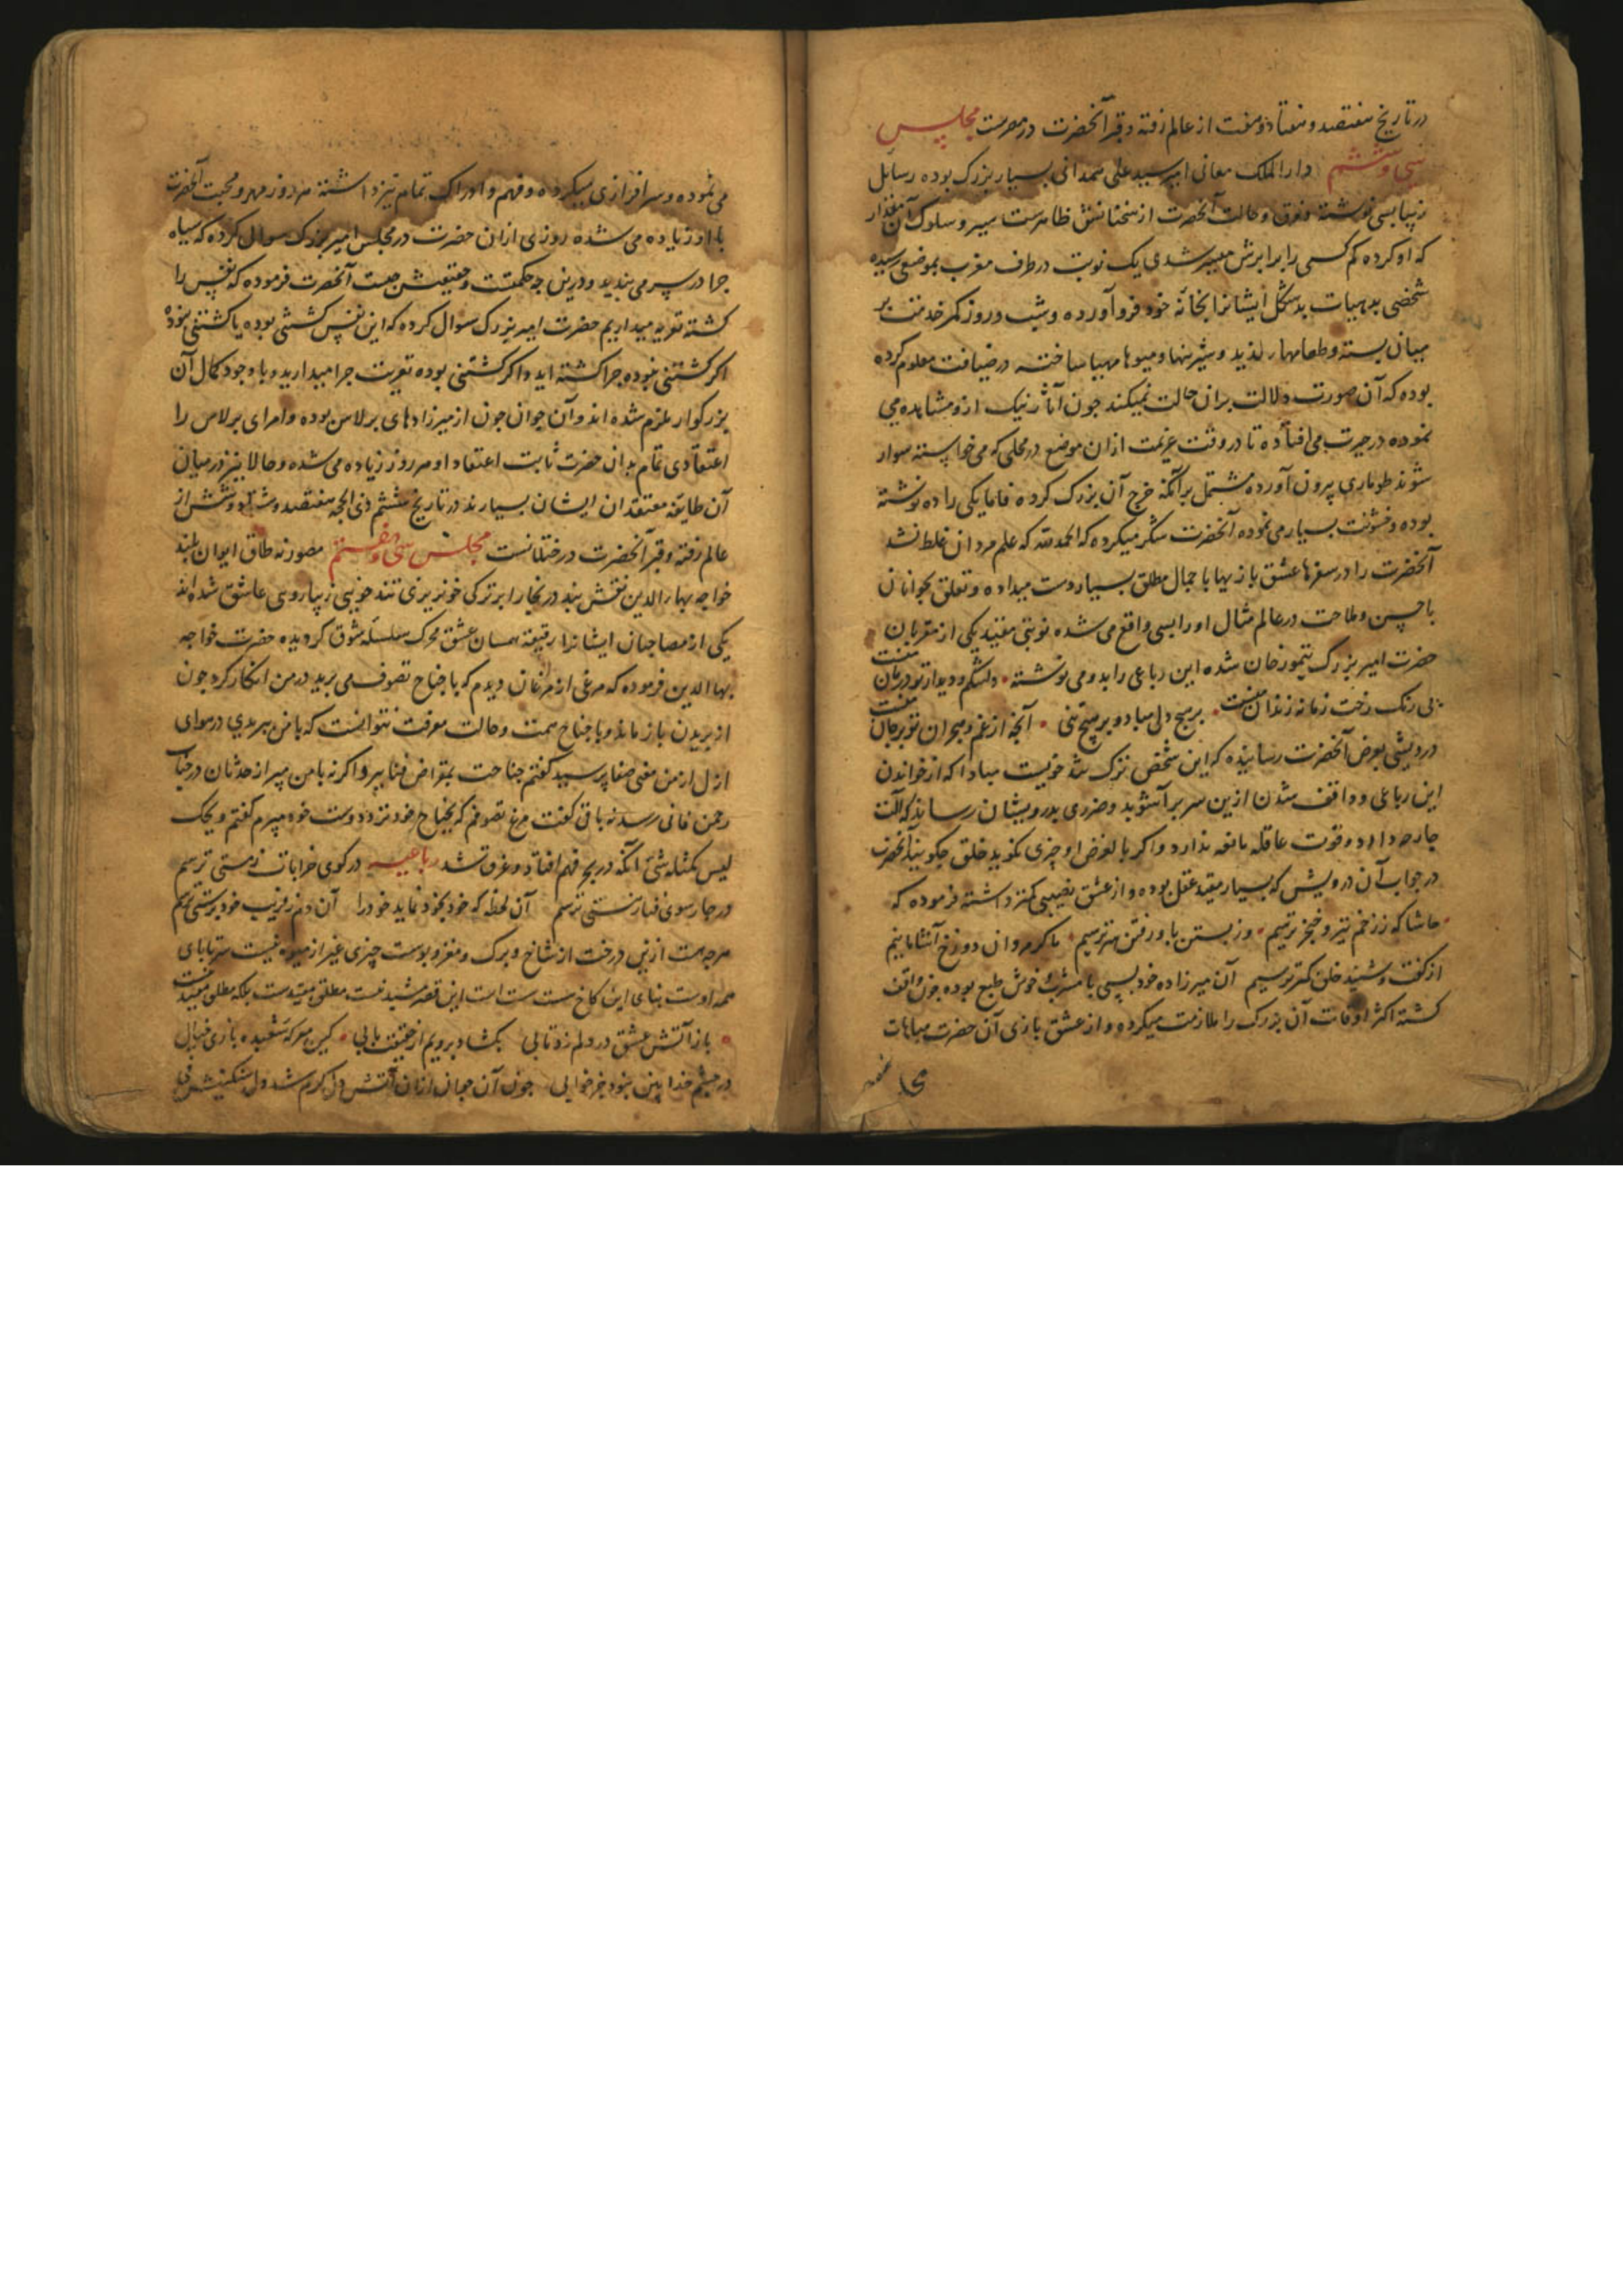 در تاریخ هفتصد و هفتاد و هفت از عالم رفته و قبر آنحضرت در مصرست مجلس
سی و ششم دار الملک معانی امیر سید علی همدانی بسیار بزرگ بوده رسایل
زیبا بسی نوشته و ذوق و حالت آنحضرت از سخنانش ظاهرست سیر و سلوک آن مقدار
که او کرده کم کسی را برابرش میسر شدی یک نوبت در طرف مغرب بموضعی رسیده
شخصی بد هیات بد شکل ایشانرا بخانه خود فرو آورده و شب و روز کمر خدمت بر
میان بسته و طعامهاء لذیذ و شیرینها و میوها مهیا ساخته در ضیافت معلوم کرده
بوده که آن صورت دلالت بران حالت نمیکند جون آثار نیک ازو مشاهده می
نموده در حیرت می افتاده تا در وقت عزیمت ازان موضع در محلی که می خواسته سوار
شوند طوماری بیرون آورده مشتمل بر آنکه خرج آن بزرگ کرده فاما یکی را ده نوشته
بوده و خشونت بسیار می نموده آنحضرت شکر میکرده که الحمدلله که علم مردان غلط نشد
آنحضرت را در سفرها عشق بازیها با جمال مطلق بسیار دست میداده و تعلق بجوانان
با حسن و ملاحت در عالم مثال او را بسی واقع می شده نوبتی مقید یکی از مقربان
حضرت امیر بزرگ تیمور خان شده این رباعی را بدو می نوشته دلتنگم و دیدار تو درمان منست
بی رنگ رخت زمانه زندان منست بر هیچ دلی مباد و بر هیچ تنی آنچه از غم هجران تو بر جان منست
درویشی بعرض آنحضرت رسانیده که این شخص ترک تند خویست مبادا که از خواندن
این رباعی و واقف شدن ازین سر بر آشوبد و ضرری بدرویشان رساند که آلت
جارحه دارد و قوت عاقله مانعه ندارد و اگر بالفرض او چیزی نگوید خلق چگویند آنحضرت
در جواب آن درویش که بسیار مقید عقل بوده و از عشق نصیبی کمتر داشته فرموده که
حاشا که ز زخم تیر و خنجر ترسیم وز بستن پا و رفتن سر ترسیم ما گرم روان دوزخ آشامانیم
از گفت و شنید خلق کمتر ترسیم آن میرزاده خود بسی با مشرب و خوش طبع بوده جون واقف
گشته اکثر اوقات آن بزرگ را ملازمت میکرده و از عشق بازی آن حضرت مباهات
می نموده و سرافرازی میکرده و فهم و ادراک تمام نیز داشته هر روز مهر و محبت آنحضرت
با او زیاده می شده روزی ازان حضرت در مجلس امیر بزرگ سوال کرده که سیاه
جرا در سر می بندید و درین جه حکمتست و حقیقتش چیست آنحضرت فرموده که نفس را
کشته تعزیه میداریم حضرت امیر بزرگ سوال کرده که این نفس کشتنی بوده یا کشتنی نبوده
اگر کشتنی نبوده جرا کشته اید و اگر کشتنی بوده تعزیت جرا میدارید و با وجود کمال آن
بزرگوار ملزم شده اند و آن جوان جون از میرزادهای برلاس بوده و امرای برلاس را
اعتقادی تمام بدان حضرت ثابت اعتقاد او هر روز زیاده می شده و حالا نیز در میان
آن طایفه معتقدان ایشان بسیارند در تاریخ ششم ذی الحجه هفتصد و هشتاد و شش از
عالم رفته و قبر آنحضرت در ختلانست مجلس سی و هفتم مصور نه طاق ایوان بلند
خواجه بهاء الدین نقش بند در بخارا بر ترکی خونریزی تند خویی زیبا رویی عاشق شده اند
یکی از مصاحبان ایشانرا رقیقه همسان عشق محرک سلسله شوق گردیده حضرت خواجه
بهاالدین فرموده که مرغی از مرغان دیدم که با جناح تصوف می برید در من انکار کرد جون
از بریدن باز ماند و با جناح همت و حالت معرفت نتوانست که با من ببریدی در هوای
ازل از من معنی صفا پرسید گفتم جناحت بمقراض فنا ببر و اگر نه با من مپر از حدثان در جناب
رحمن فانی رسد نه باقی گفت مرغ تصوفم که بجناح خود نزد دوست خود میپرم گفتم ویحک
لیس کمثله شیء آنکه در بحر فهم افتاد و غرق شد رباعیه در کوی خرابات ز مستی ترسم
در چار سوی فنا ز هستی ترسم آن لحظه که خود بخود نماید خود را آن دم ز فریب خود پرستی ترسم
هرجه هست ازین درخت از شاخ و برگ و مغز و پوست چیزی غیر از میوه نیست سر تا پای
همه اوست بنای این کاخ سست است این قصه مشید نیست مطلق مقیدست بلکه مطلق مقید نیست
باز آتش عشق در دلم زد تابی بکشاد برویم از حقیقت بابی کین معرکه شعبده بازی خیال
در چشم خدا بین نبود جز خوابی جون آن جوان ازان آتش دل گرم شد و دل سنگینش فی